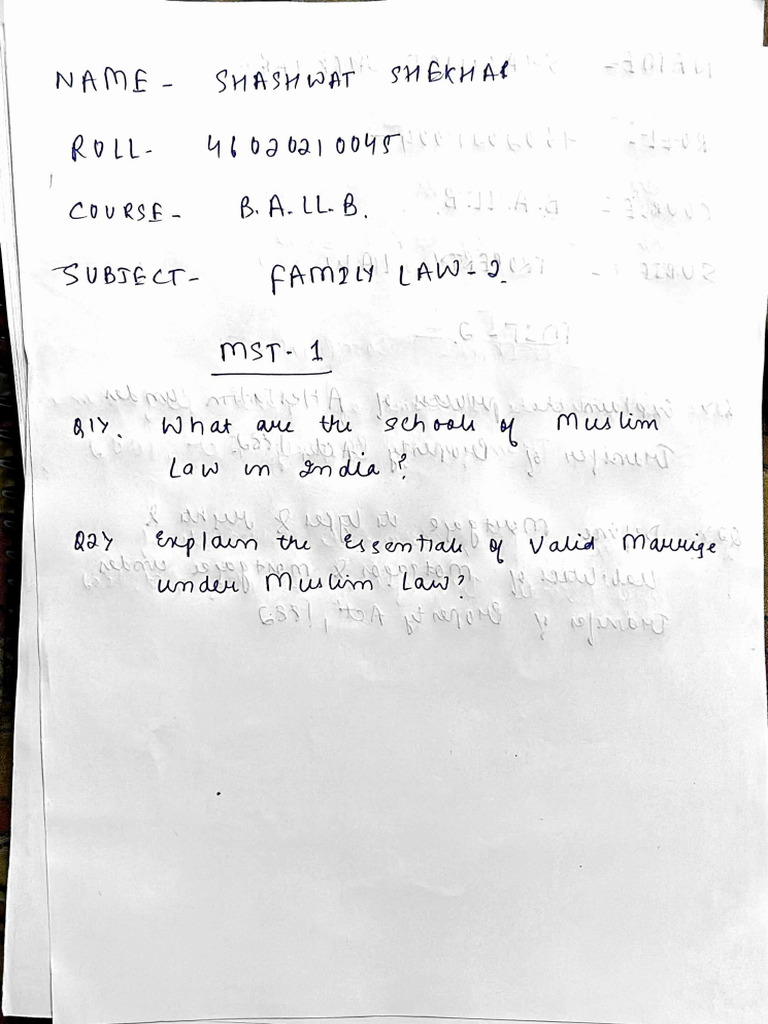 NAME - SHASHWAT SHEKHAR
ROLL - 46020210045
COURSE - B.A.LL.B.
SUBJECT - FAMILY LAW-2.
MST-1
Q1). What are the schools of Muslim
Law in India?
Q2) Explain the Essentials of Valid Marrige
under Muslim Law?